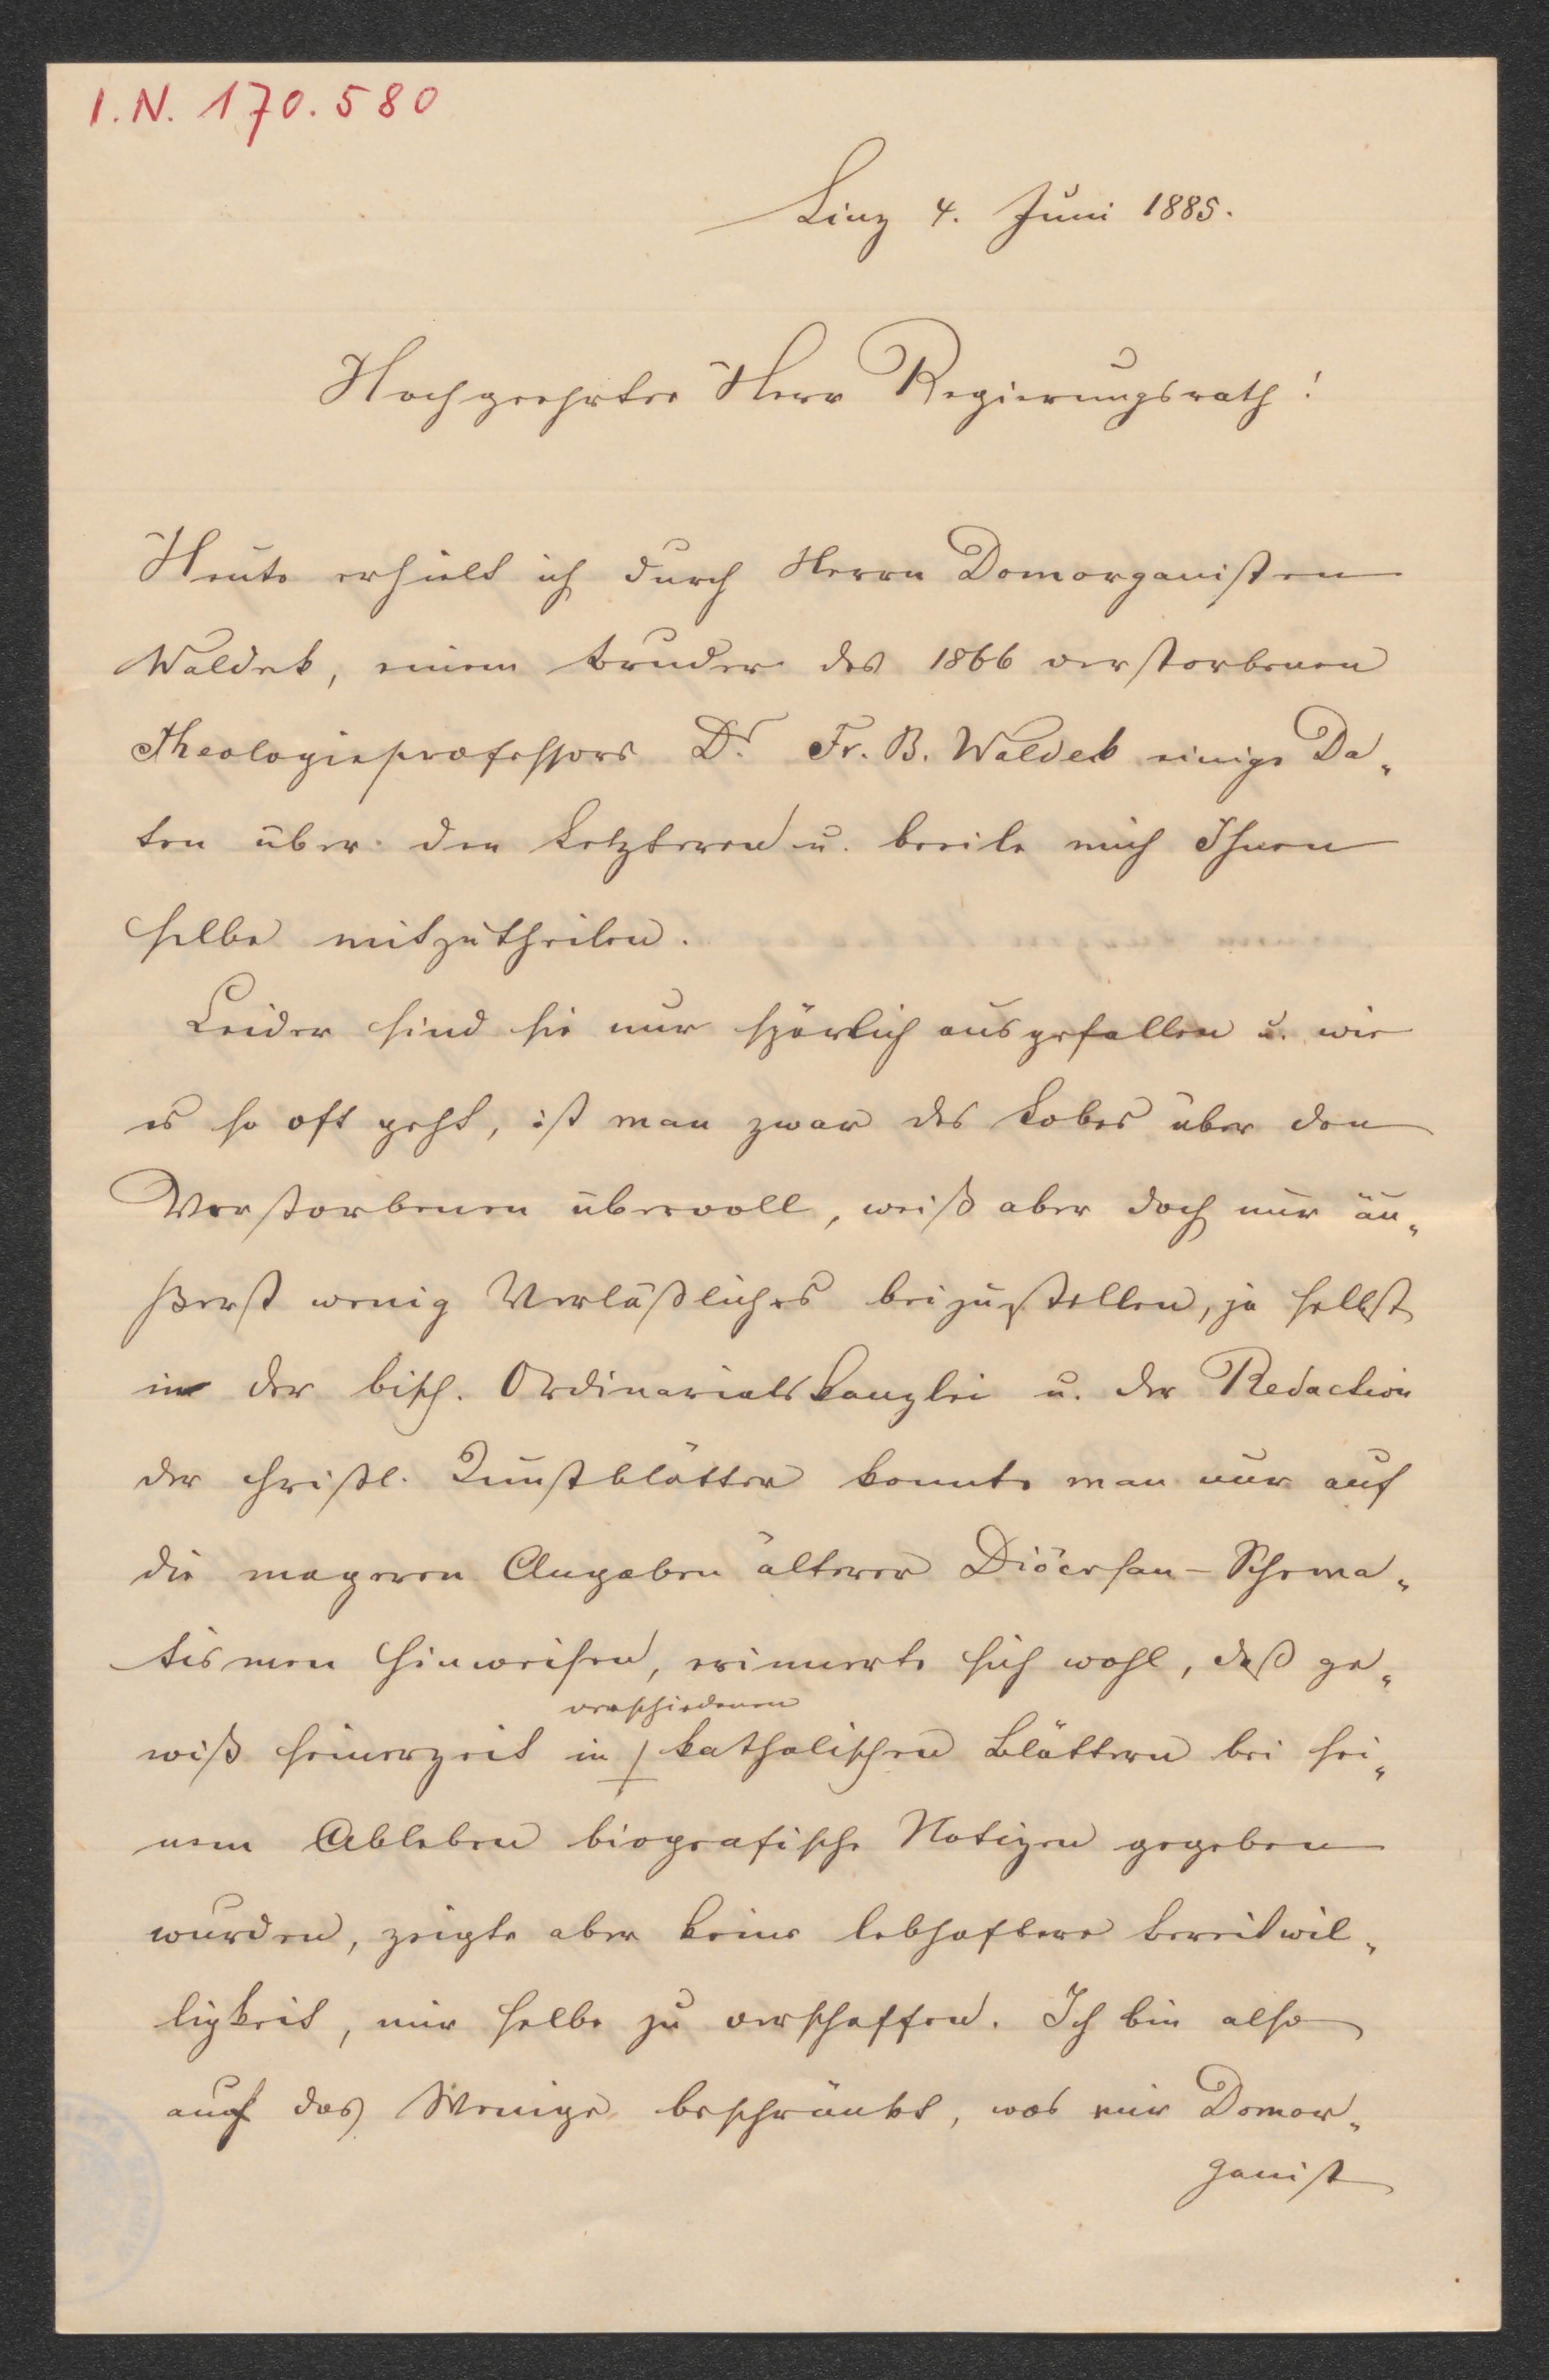 I.N. 170.580
Linz 4. Juni 1885.
Hochgeehrter Herr Regierungsrath!
Heute erhielt ich durch Herrn Domorganisten
Waldek, einem Bruder des 1866 verstorbenen
Theologieprofessors Dr. Fr. B. Waldek einige Da„
ten über den Letzteren u. beeile mich Ihnen
selbe mitzutheilen.
Leider sind sie nur spärlich ausgefallen u. wie
es so oft geht, ist man zwar des Lobes über den
Verstorbenen übervoll, weiß aber doch nur äu„
ßerst wenig Verläßliches beizustellen, ja selbst
in der bisch. Ordinariatskanzlei u. der Redaction
der christl. Kunstblätter konnte man nur auf
die mageren Angaben älterer Diöcesan-Schema„
tismen hinweisen, erinnerte sich wohl, daß ge„
verschiedenen
wiß seinerzeit in katholischen Blättern bei sei„
nem Ableben biografische Notizen gegeben
wurden, zeigte aber keine lebhaftere Bereitwil„
ligkeit, mir selbe zu verschaffen. Ich bin also
auf das Wenige beschränkt, was mir Domor„
ganist